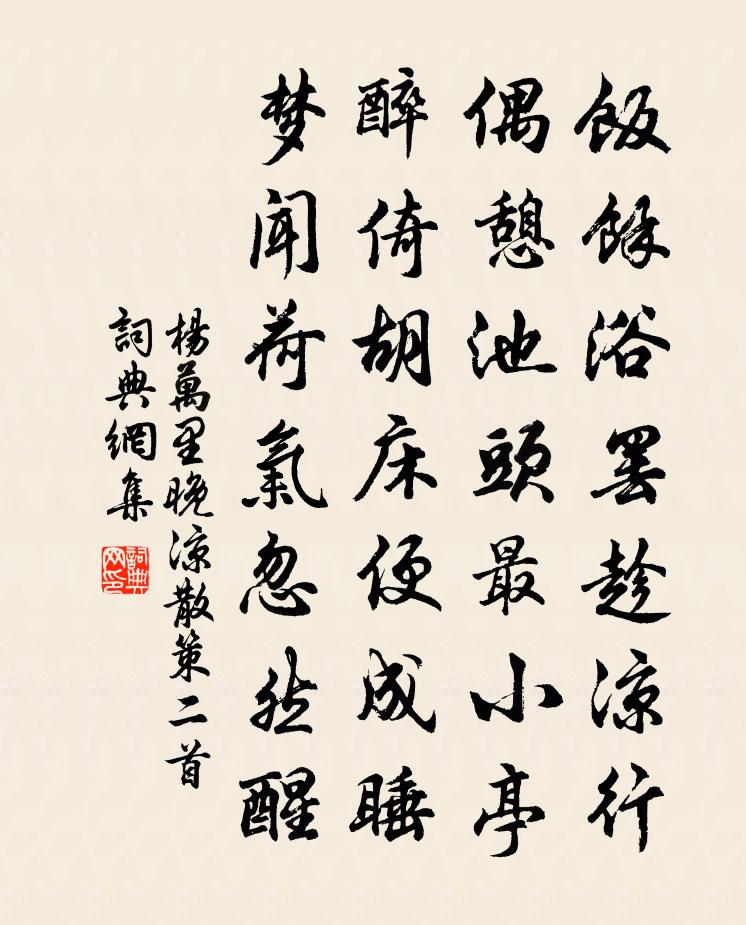 飯餘浴罢趁凉行
偶憩池頭最小亭
醉倚胡床便成睡
梦闻荷氣忽然醒
楊萬里晚凉散策二首
詞典網集
詞典网印